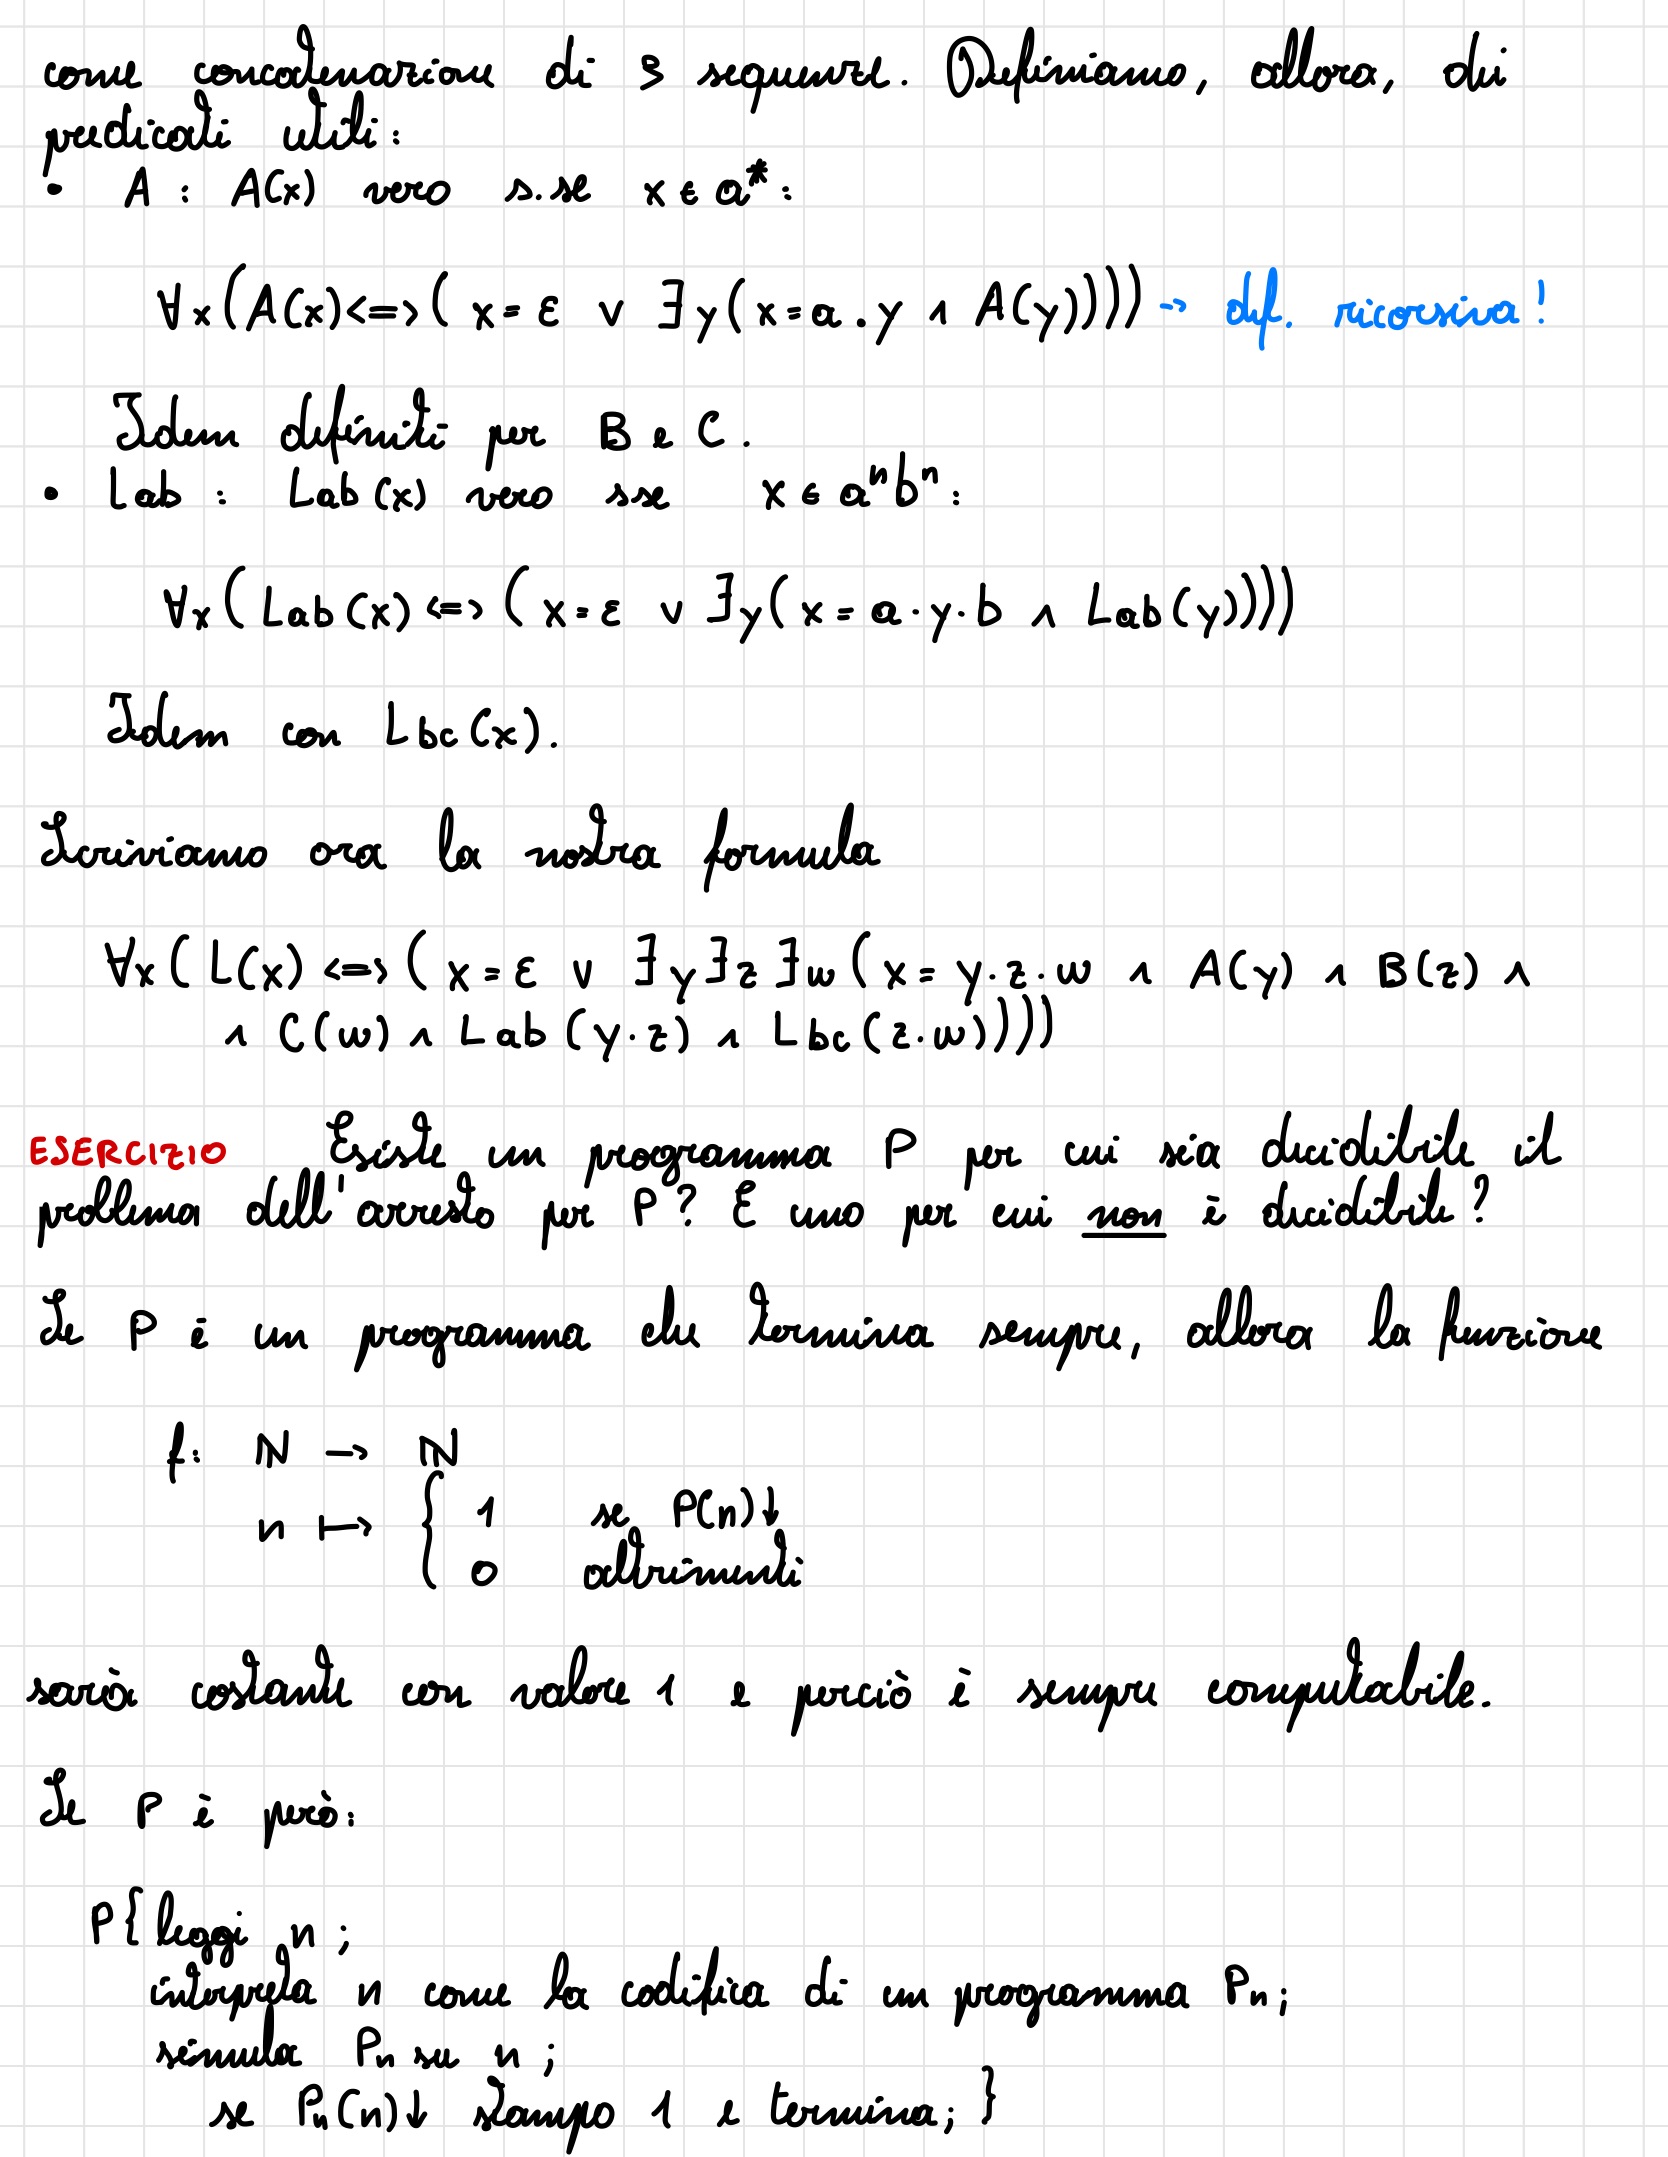 come concatenazione di 3 sequenze. Definiamo, allora, dei
predicati utili:
• A : A(x) vero s.se x ∈ a*:
∀x(A(x)<=>( x=ε ∨ ∃y(x=a.y ∧ A(y)))) → def. ricorsiva!
Idem definiti per B e C.
• Lab : Lab(x) vero sse x ∈ aⁿbⁿ:
∀x(Lab(x)<=>(x=ε ∨ ∃y(x=a·y·b ∧ Lab(y))))
Idem con Lbc(x).
Scriviamo ora la nostra formula
∀x(L(x)<=>(x=ε ∨ ∃y∃z∃w(x=y·z·w ∧ A(y) ∧ B(z) ∧
∧ C(w) ∧ Lab(y·z) ∧ Lbc(z·w))))
ESERCIZIO Esiste un programma P per cui sia decidibile il
problema dell'arresto per P? E uno per cui non è decidibile?
Se P è un programma che termina sempre, allora la funzione
f: ℕ → ℕ
n ↦ { 1 se P(n)↓
0 altrimenti
sarà costante con valore 1 e perciò è sempre computabile.
Se P è però:
P{ leggi n;
interpreta n come la codifica di un programma Pₙ;
simula Pₙ su n;
se Pₙ(n)↓ stampo 1 e termina; }